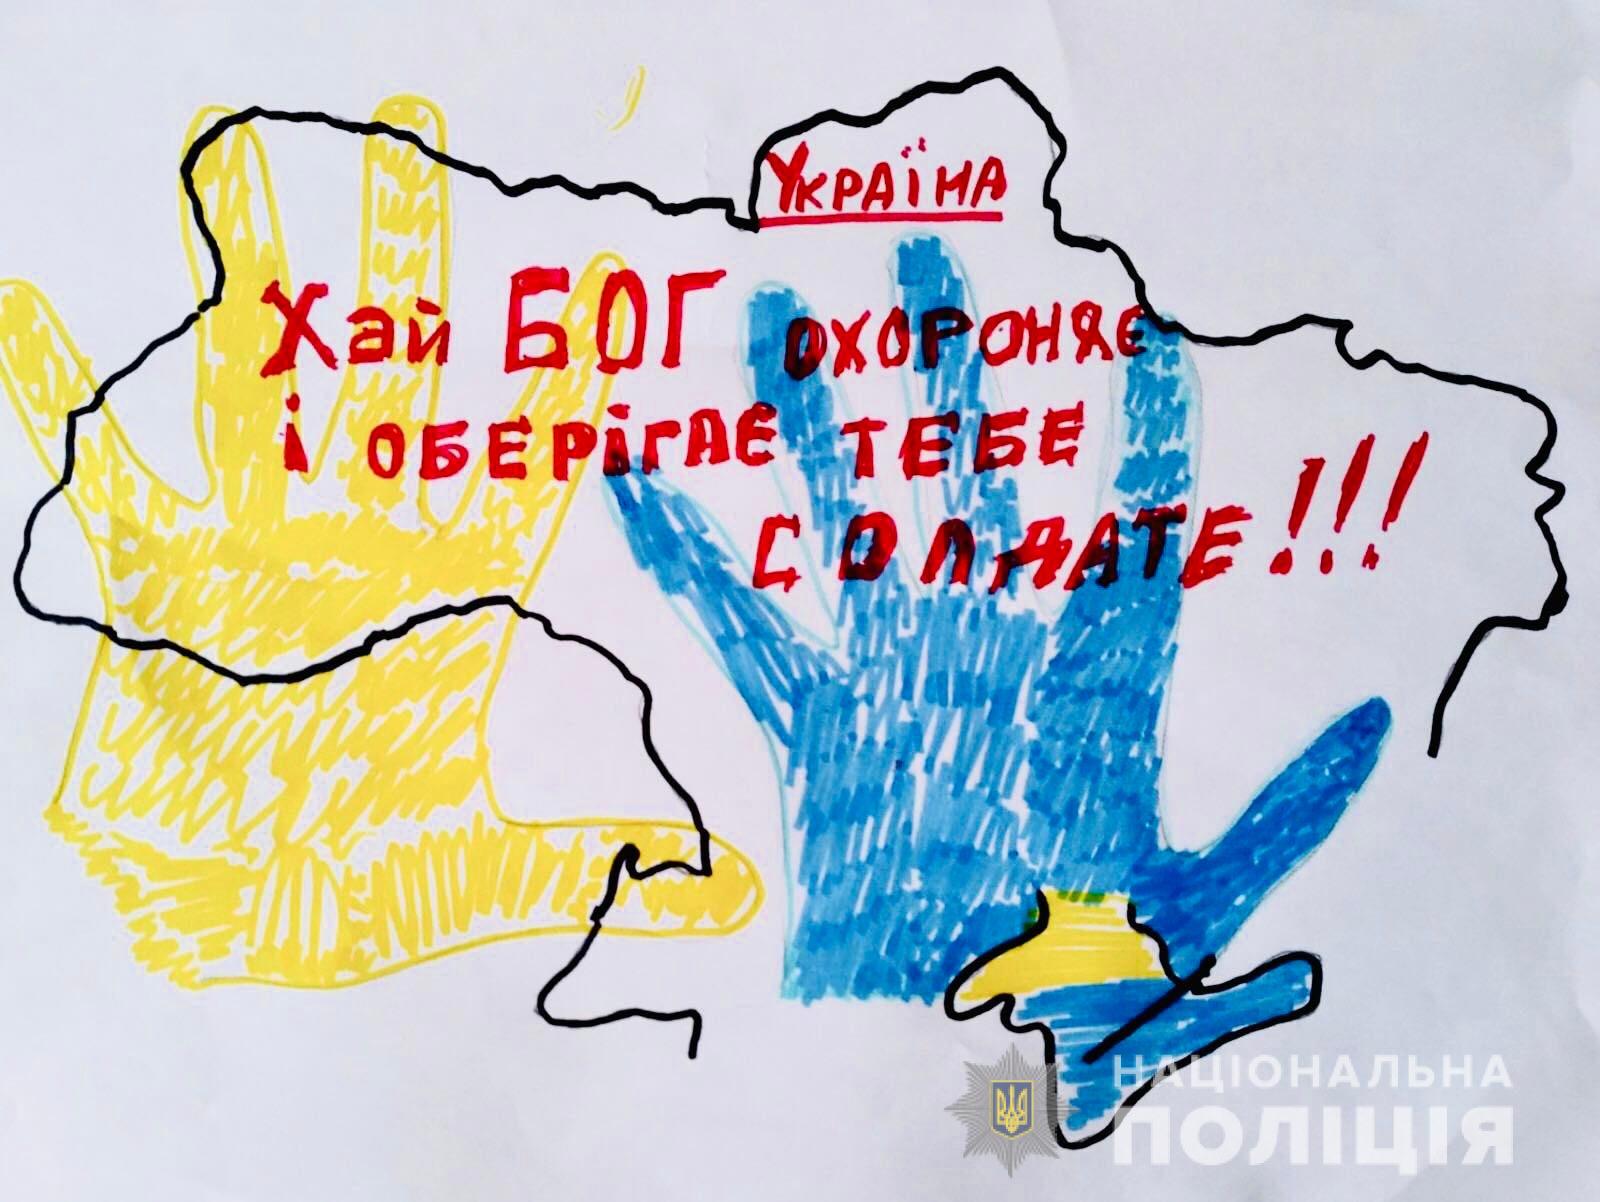 УКРАЇНА
Хай БОГ ОХОРОНЯЄ
і ОБЕРІГАЄ ТЕБЕ
СОЛДАТЕ!!!
НАЦІОНАЛЬНА
ПОЛІЦІЯ